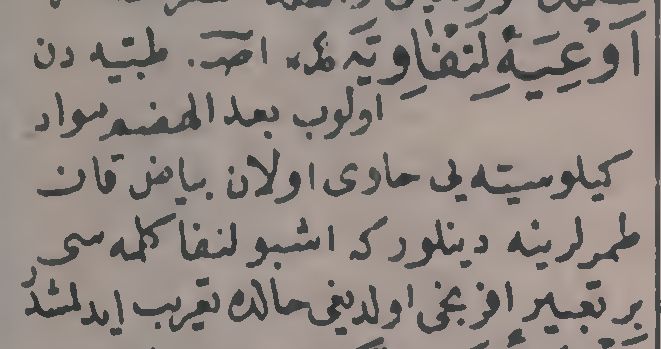 اَوْعِيَهٔ لِنَفَاوِيَّه اصـ. طبيه دن
اولوب بعد الهضم مواد
كيلوسيته يى حاوى اولان بياض قان
طمرلرينه دينلور كه اشبو لنفا كلمه سى
بر تعبير افرنجى اولديغى حالده تعريب ايدلمشدر